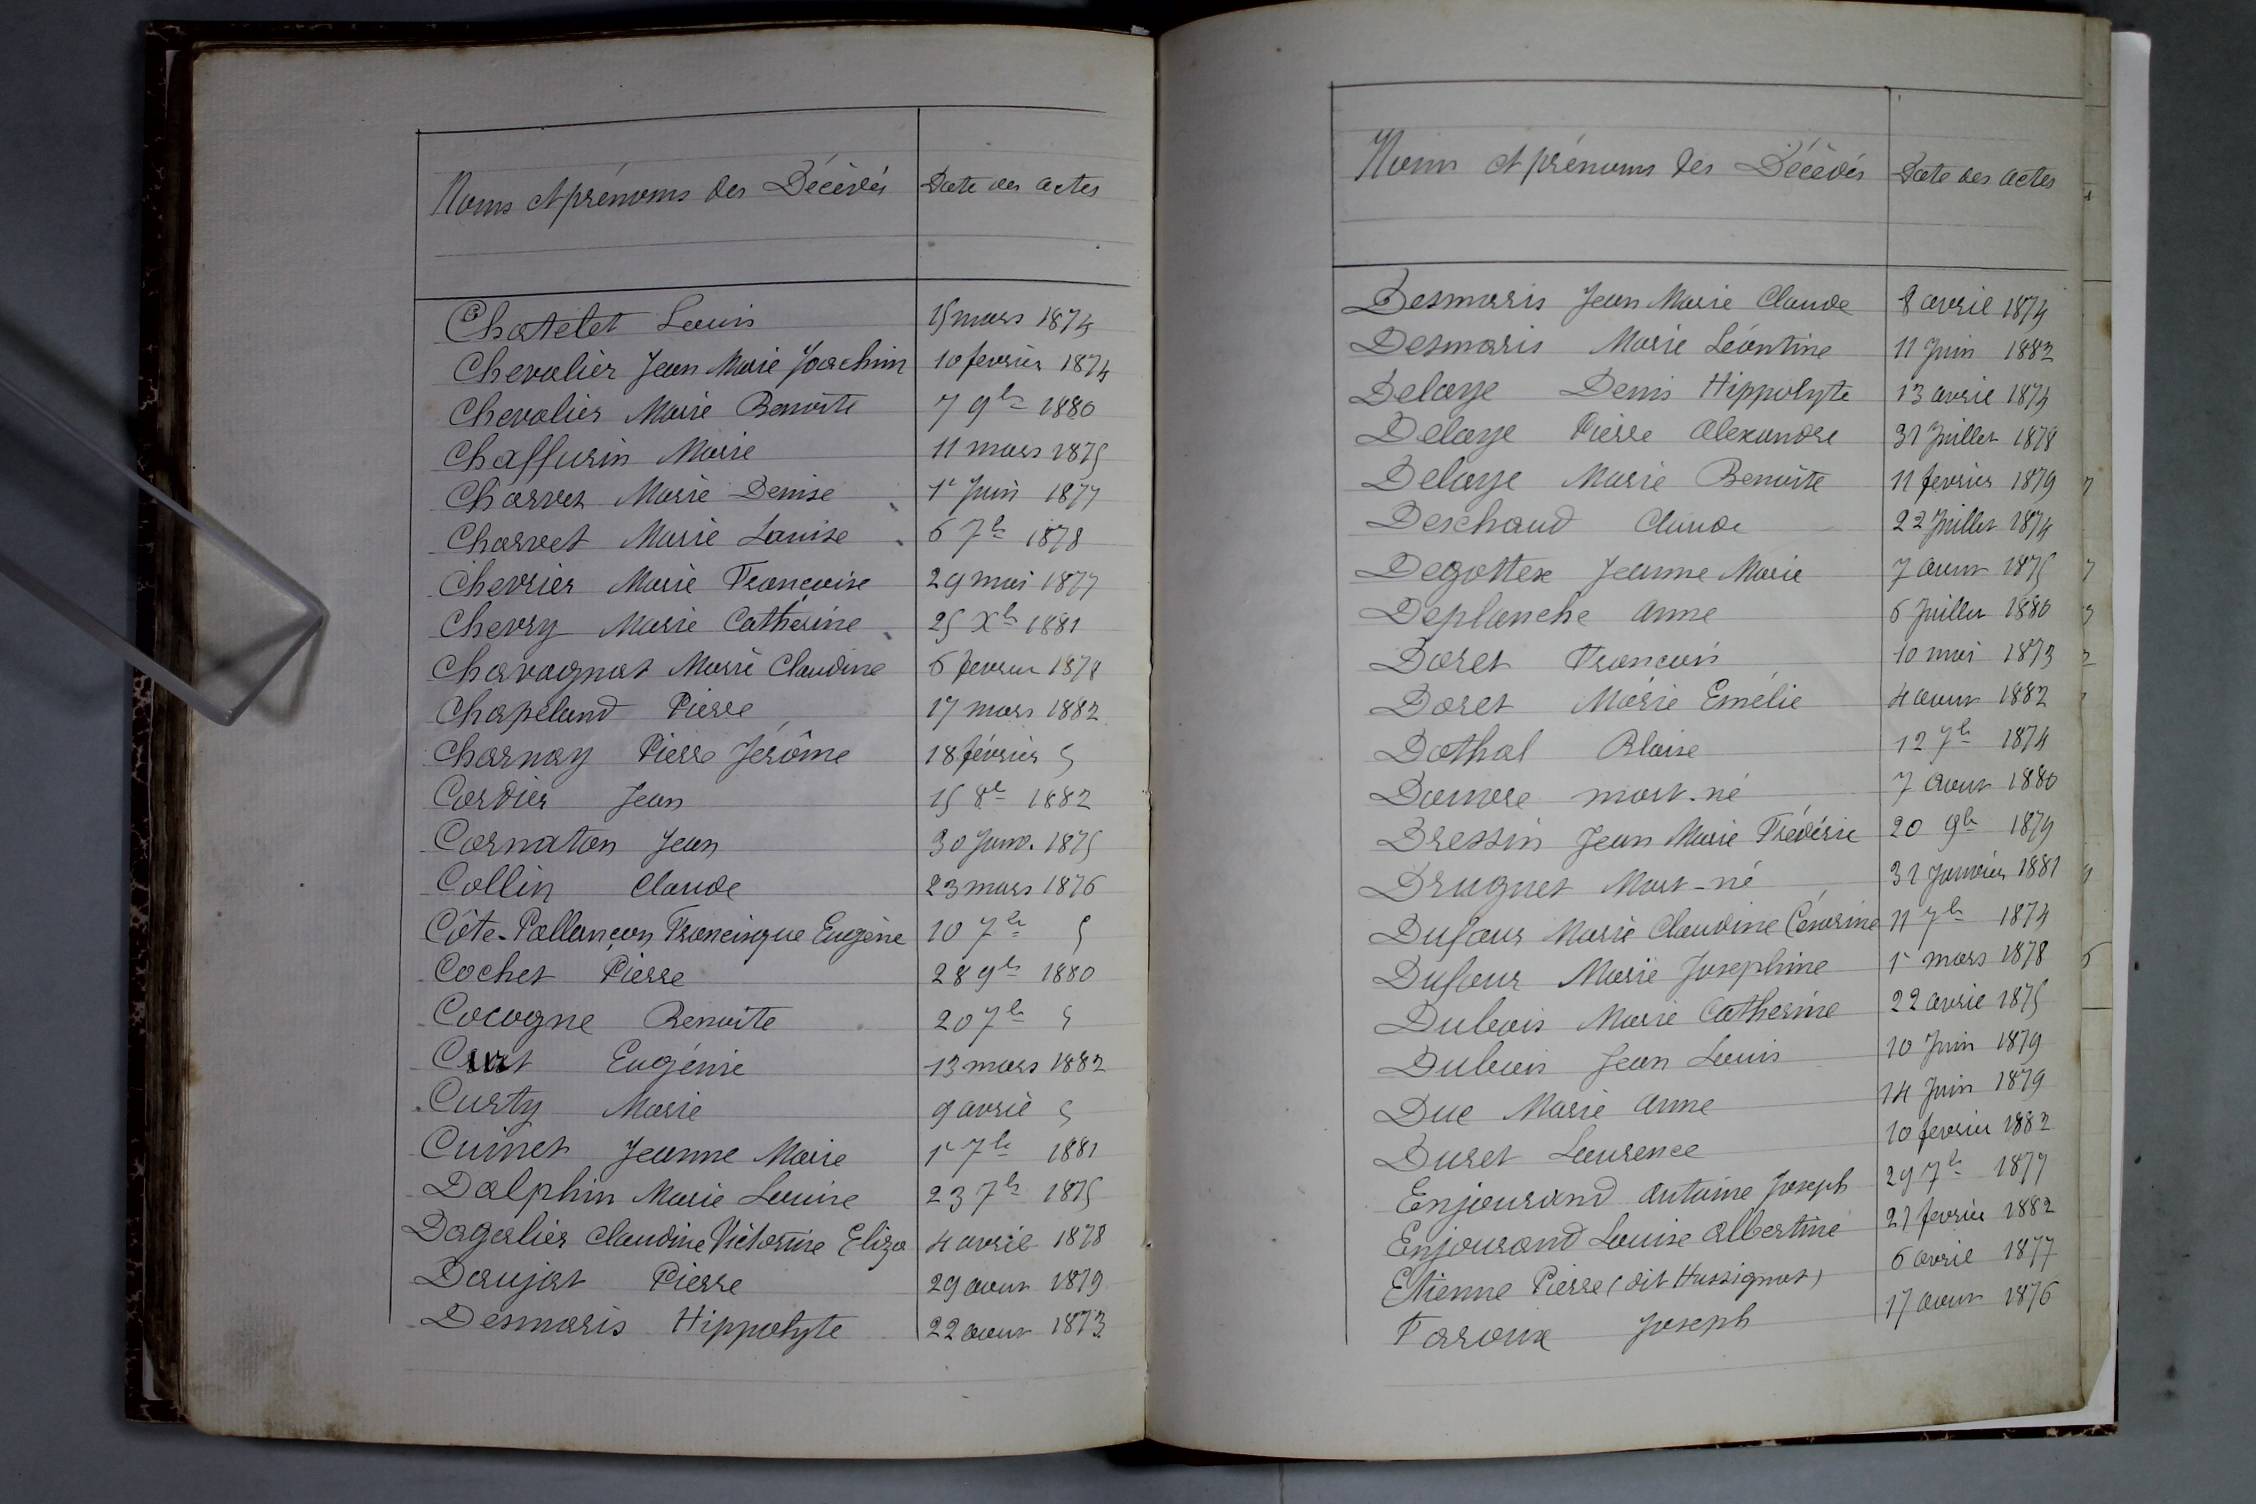 Noms et prénoms des Décédés Date des actes
Chatelet Louis 15 mars 1874
Chevalier Jean Marie Joachim 10 fevrier 1874
Chevalier Marie Benoite 7 9bre 1880
Chaffurin Marie 11 mars 1875
Charvet Marie Denise 1r Juin 1877
Charvet Marie Louise 6 7bre 1878
Chevrier Marie Francoise 29 mai 1877
Chevry Marie Catherine 25 Xbre 1881
Chavagnat Marie Claudine 6 fevrier 1878
Chapeland Pierre 17 mars 1882
Charnay Pierre Jérôme 18 février
Cordier Jean 15 8bre 1882
Cornaton Jean 30 Janv. 1875
Collin Claude 23 mars 1876
Côte-Pallançon Francisque Eugène 10 7bre
Cochet Pierre 28 9bre 1880
Cocogne Benoite 20 7bre
Curt Eugénie 13 mars 1882
Curty Marie 9 avril
Cuinet Jeanne Marie 1r 7bre 1881
Dalphin Marie Louise 23 7bre 1875
Dagallier Claudine Victorine Eliza 4 avril 1878
Daujat Pierre 29 aout 1879
Desmaris Hippolyte 22 aout 1873
Noms et prénoms des Décédés Date des actes
Desmaris Jean Marie Claude 8 avril 1874
Desmaris Marie Léontine 11 Juin 1882
Delaye Denis Hippolyte 13 avril 1874
Delaye Pierre Alexandre 31 Juillet 1878
Delaye Marie Benoite 11 fevrier 1879
Deschaud Claude 22 Juillet 1874
Degottex Jeanne Marie 7 aout 1875
Deplanche Anne 6 Juillet 1880
Doret Francois 10 mai 1873
Doret Marie Emélie 4 aout 1882
Dothal Blaise 12 7bre 1874
Damore mort-né 7 Aout 1880
Dressin Jean Marie Frédéric 20 9bre 1879
Druguet Mort-né 31 Janvier 1881
Dufour Marie Claudine Césarine 11 7bre 1874
Dufour Marie Josephine 1r mars 1878
Dubois Marie Catherine 22 avril 1875
Dubois Jean Louis 10 Juin 1879
Duc Marie Anne 14 Juin 1879
Duret Laurence 10 fevrier 1882
Enjourand Antoine Joseph 29 7bre 1877
Enjourand Louise Albertine 21 fevrier 1882
Etienne Pierre (dit Hussignot) 6 avril 1877
Farroux Joseph 17 aout 1876